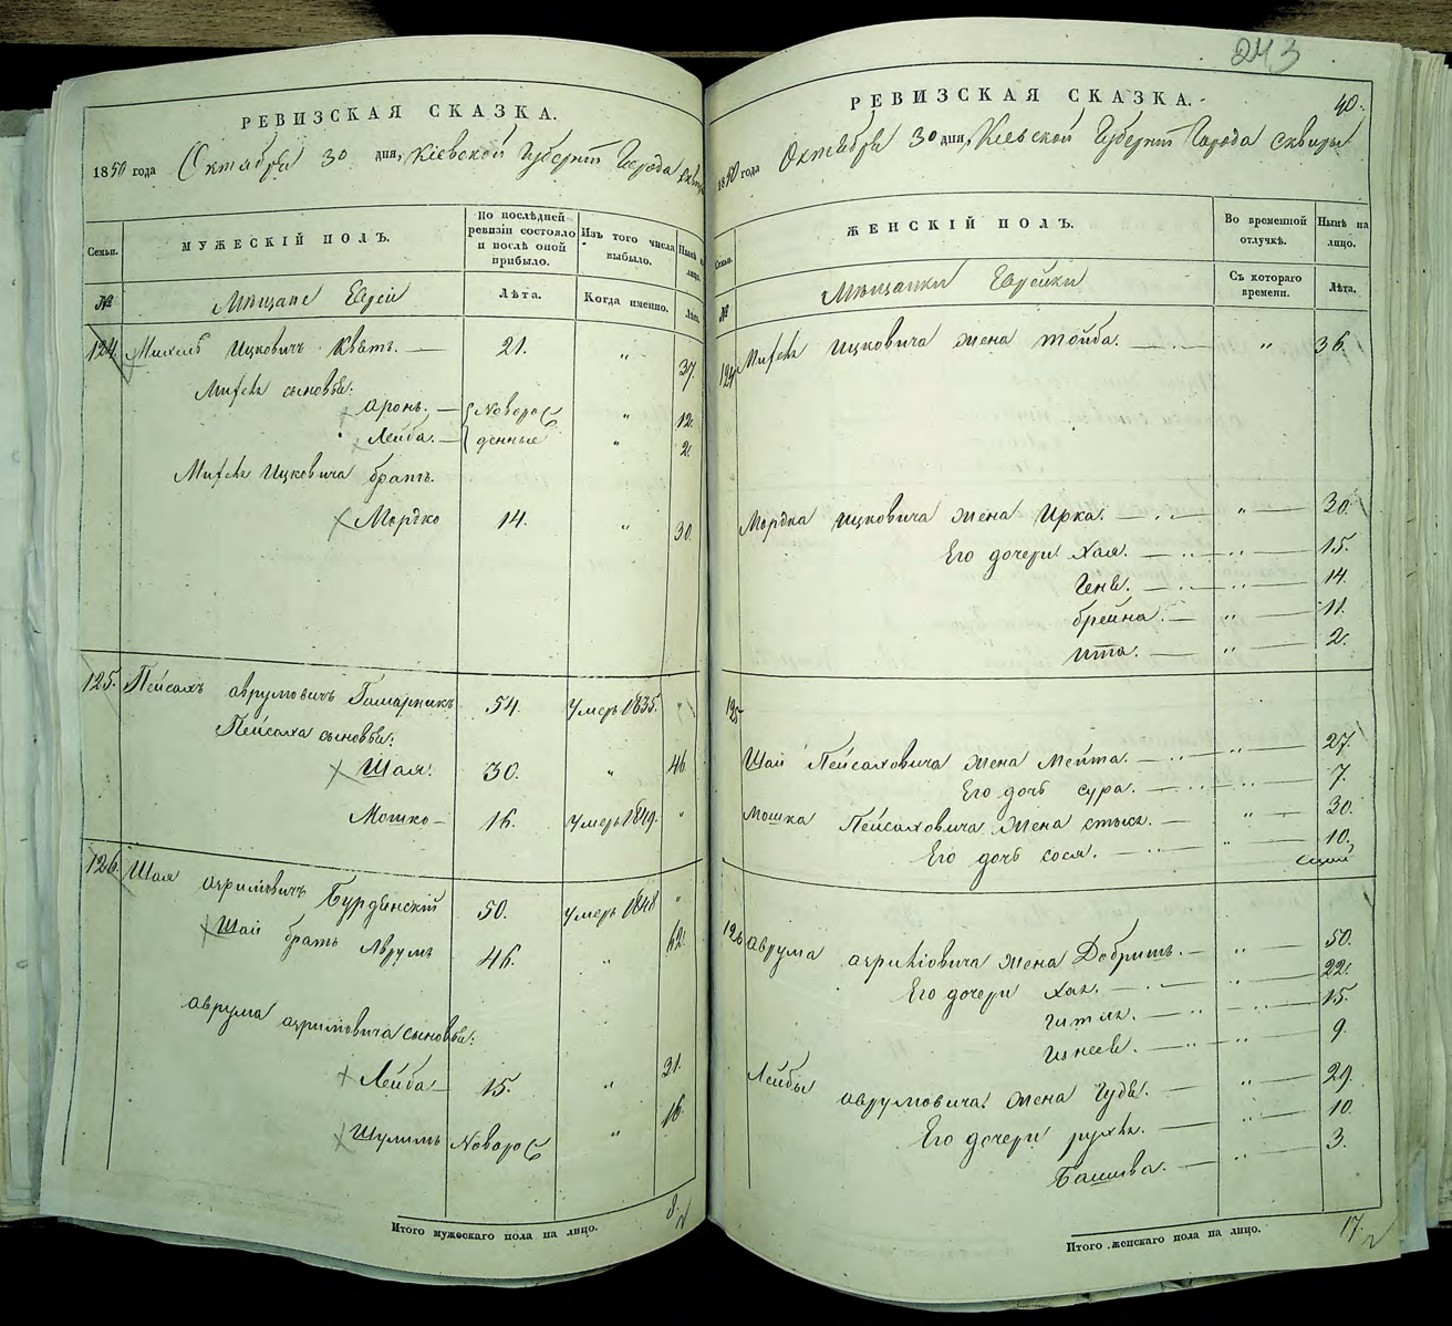 РЕВИЗСКАЯ СКАЗКА.
1850 года Октября 30 дня, Кіевской Губерніи Города Сквиры
Семьи.
МУЖЕСКІЙ ПОЛЪ.
По послѣдней ревизіи состояло и послѣ оной прибыло.
Изъ того числа выбыло.
Нынѣ на лицо.
№
Мѣщане Евреи
Лѣта.
Когда именно.
Лѣта.
124. Ицковичъ Квѣтъ. — 21. „ 37.
сыновья:
Аронъ. — Новорож „ 12.
Лейба. — денные „ 2.
Ицковича братъ.
Мордко 14. „ 30.
125. Пейсахъ Аврумовичъ Гимарникъ 54. Умеръ 1835. „
Пейсаха сыновья:
Шая. 30. „ 46
Мошко — 16. Умеръ 1849. „
126. Шая Бурдѣнскій 50. Умеръ 1848 „
Шаи братъ Аврумъ 46. „ 62.
Аврума сыновья:
Лейба — 15. „ 31.
Шулимъ Новорож „ 16.
Итого мужескаго пола на лицо. 8.
243
РЕВИЗСКАЯ СКАЗКА.
40.
1850 года Октября 30 дня, Кіевской Губерніи Города Сквиры
Семьи.
ЖЕНСКІЙ ПОЛЪ.
Во временной отлучкѣ.
Нынѣ на лицо.
№
Мѣщанки Еврейки
Съ котораго времени.
Лѣта.
124 Ицковича жена Тойба. — „ 36.
Мордка Ицковича жена Ирка. — „ — 30.
Его дочери Хая. — „ — 15.
Геня. — „ — 14.
Брейна. — „ — 11.
Ита. — „ — 2.
125
Шаи Пейсаховича жена Мейта. — „ — 27.
Его дочь Сура. — „ — 7.
Мошка Пейсаховича жена — „ — 30.
Его дочь Сося. — „ — 10.
126 Аврума жена Добришъ. — „ — 50.
Его дочери — „ — 22.
— „ — 15.
— „ — 9.
Лейбы Аврумовича жена Гудя. — „ — 29.
Его дочери — „ — 10.
Башива. — „ — 3.
Итого женскаго пола на лицо. 17.